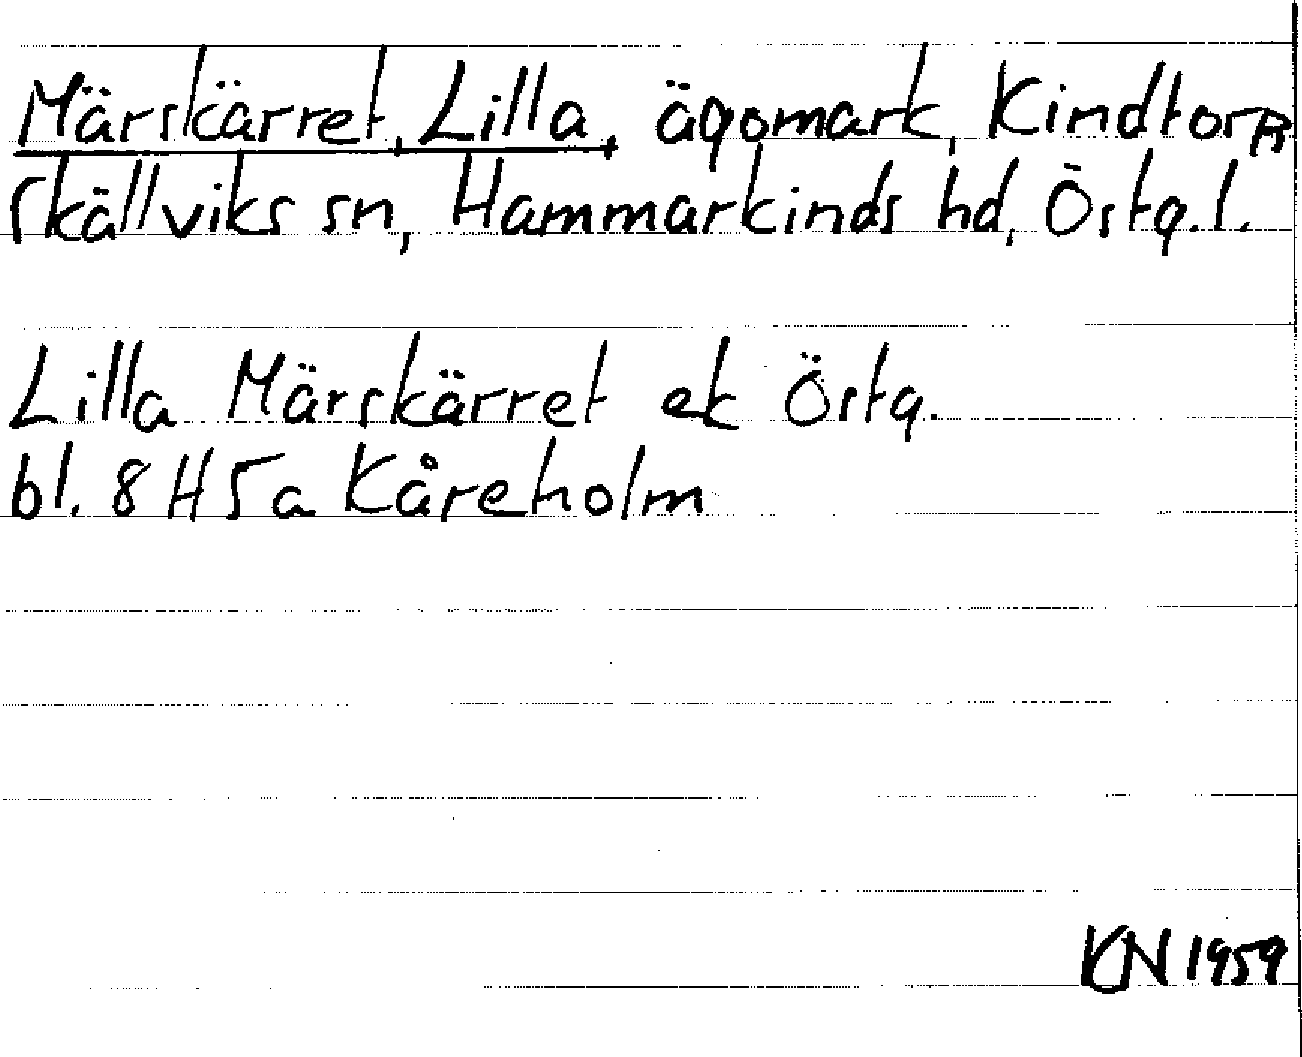 Märskärret, Lilla, ägomark, Kindtorp
Skällviks sn, Hammarkinds hd, Östg.l.
Lilla Märskärret ek Östg.
bl. 8 H 5a Kåreholm
KN 1959